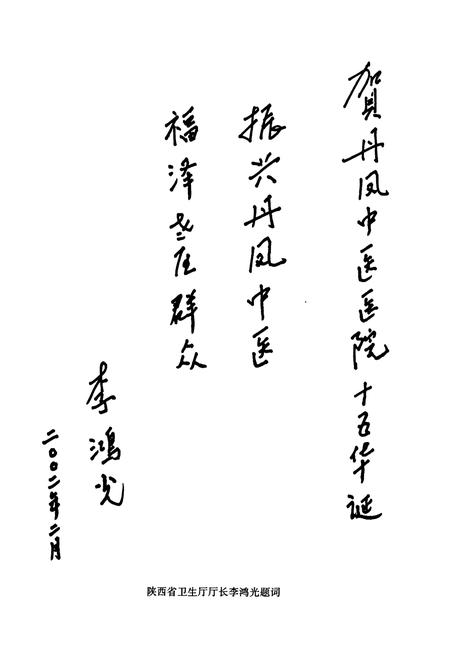 賀丹凤中医医院十五华诞
振兴丹凤中医
福泽老区群众
李鸿光
二〇〇二年二月
陕西省卫生厅厅长李鸿光题词